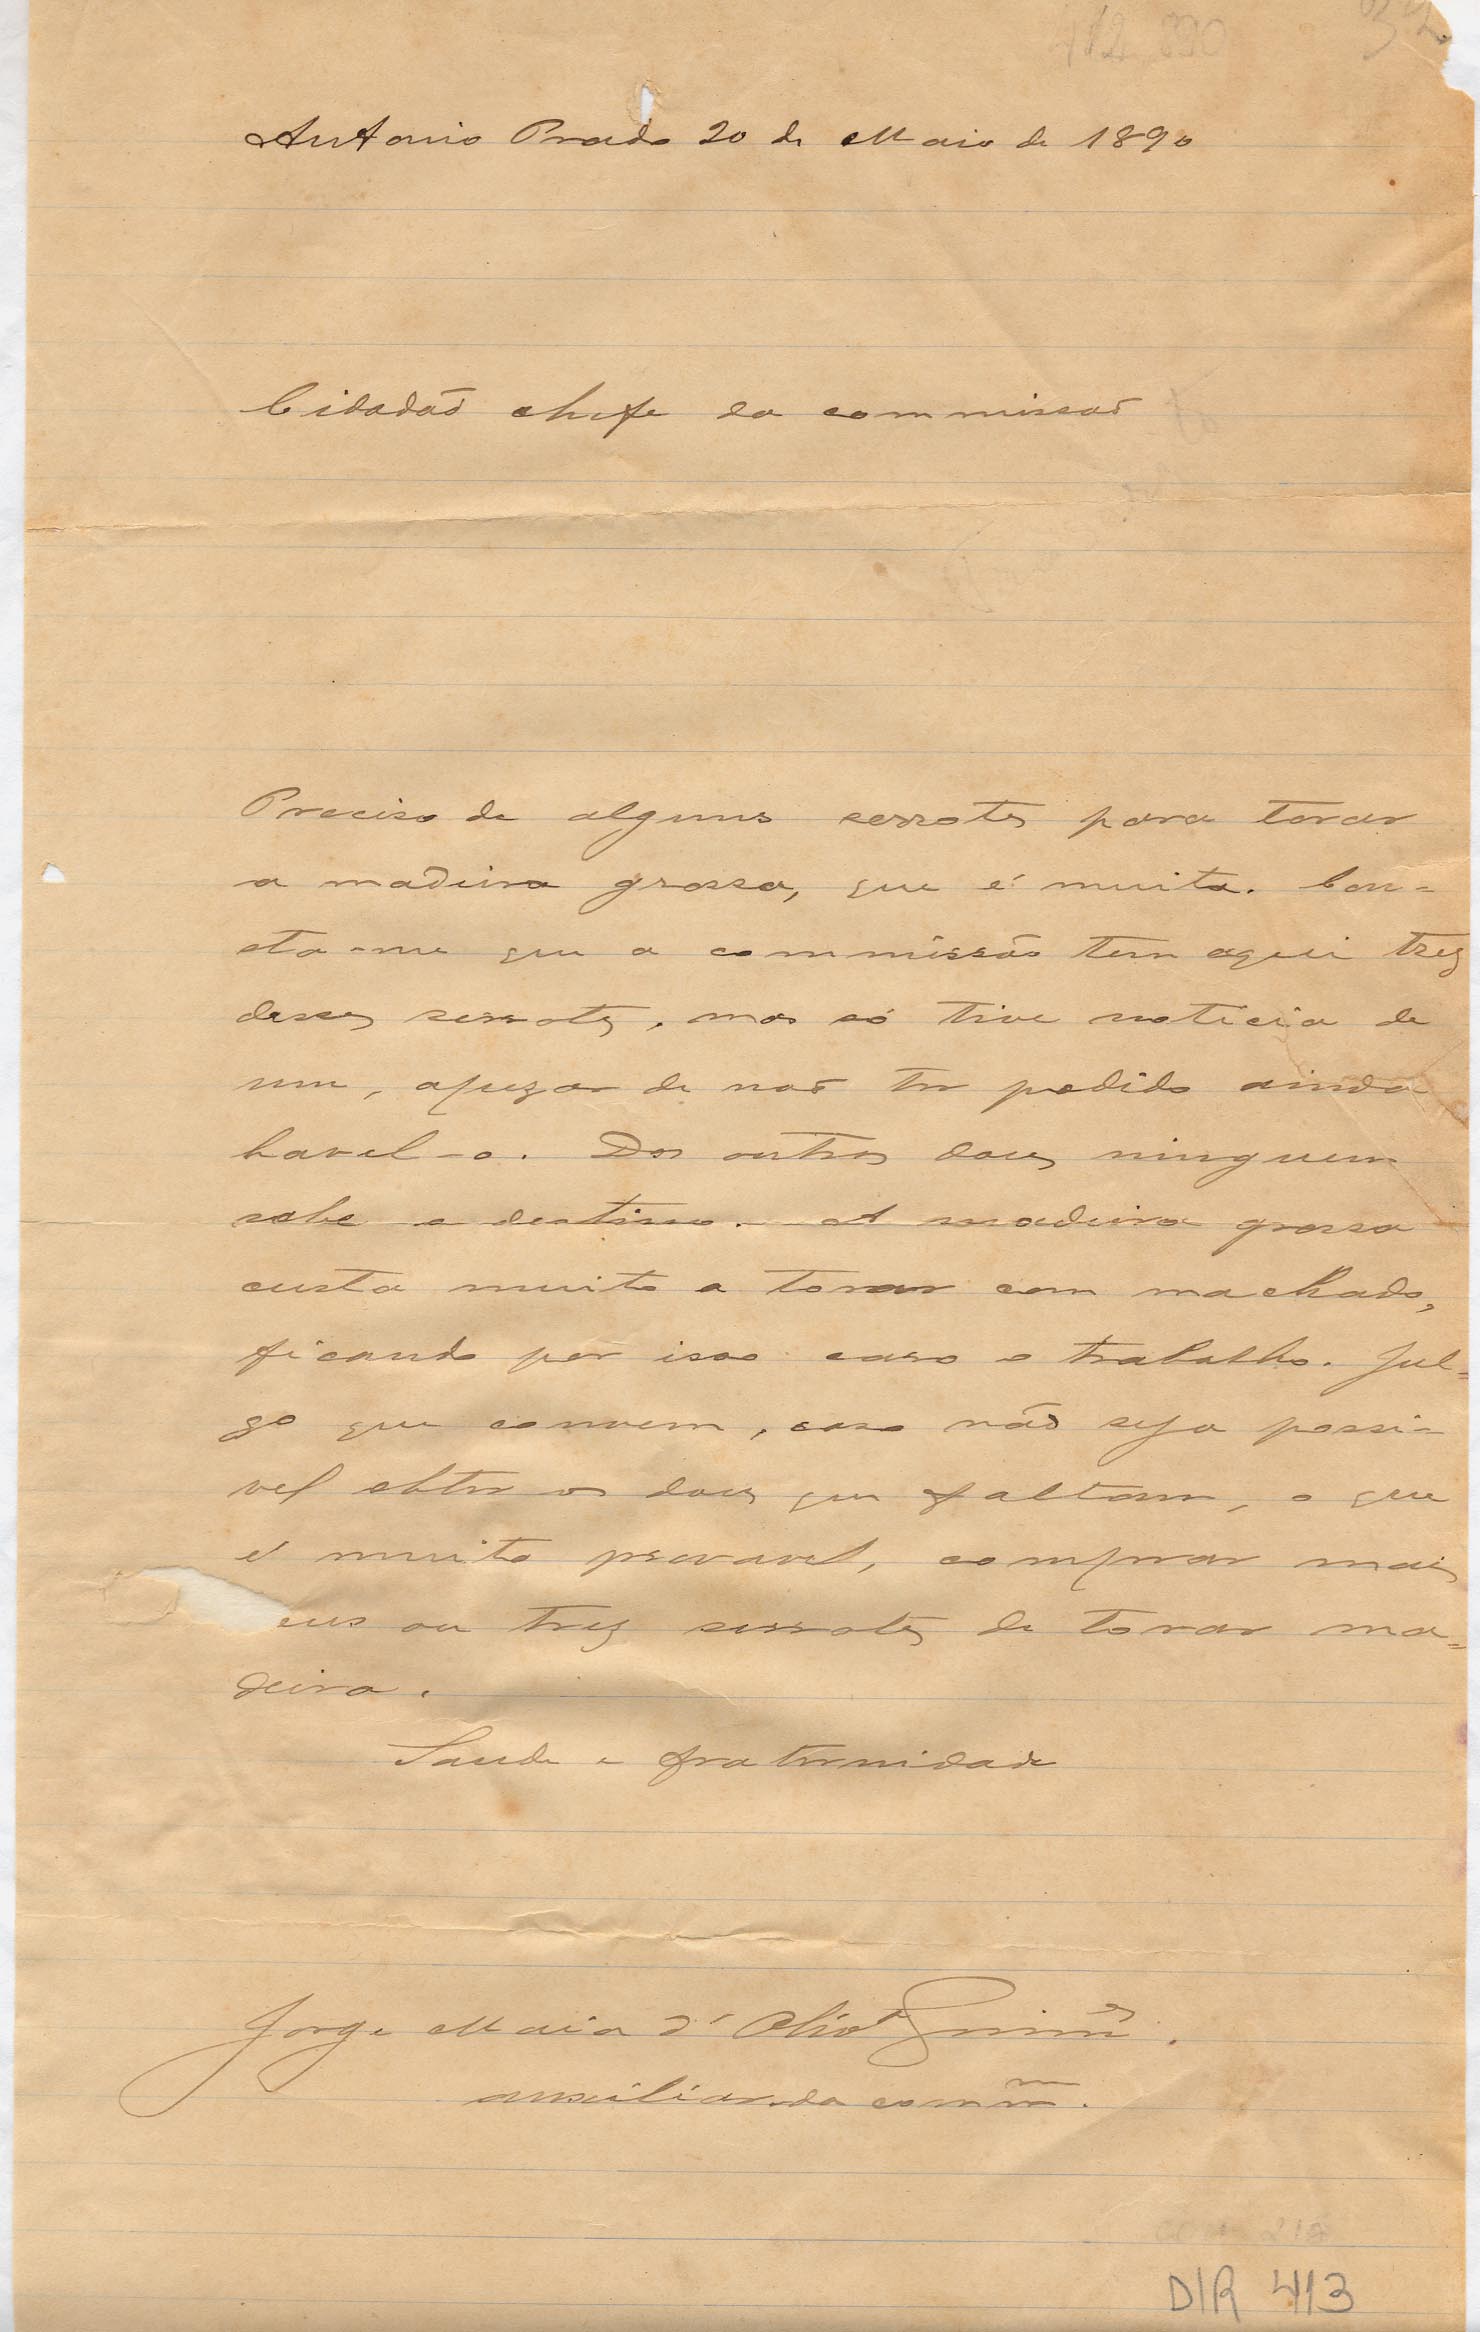 32
Antonio Prado 20 de Maio de 1890
Cidadão chefe da commissaõ
Preciso de alguns serrotes para torar
a madeira grossa, que é muita. Con=
sta-me que a commissão tem aqui trez
desses serrotes, mas só tive noticia de
um, apezar de naõ ter podido ainda
havel-o. Dos outros dous ninguem
sabe o destino. A madeira grossa
custa muito a torar com machado,
ficando por isso caro o trabalho. Jul=
go que convem, caso não seja possi=
vel obter os dous que faltam, o que
é muito provavel, comprar mais
eus ou trez serrotes de torar ma=
deira.
Saude e fraternidade
Jorge Maia d'Olivª Guimês.
auxiliar da commm.
DIR 413